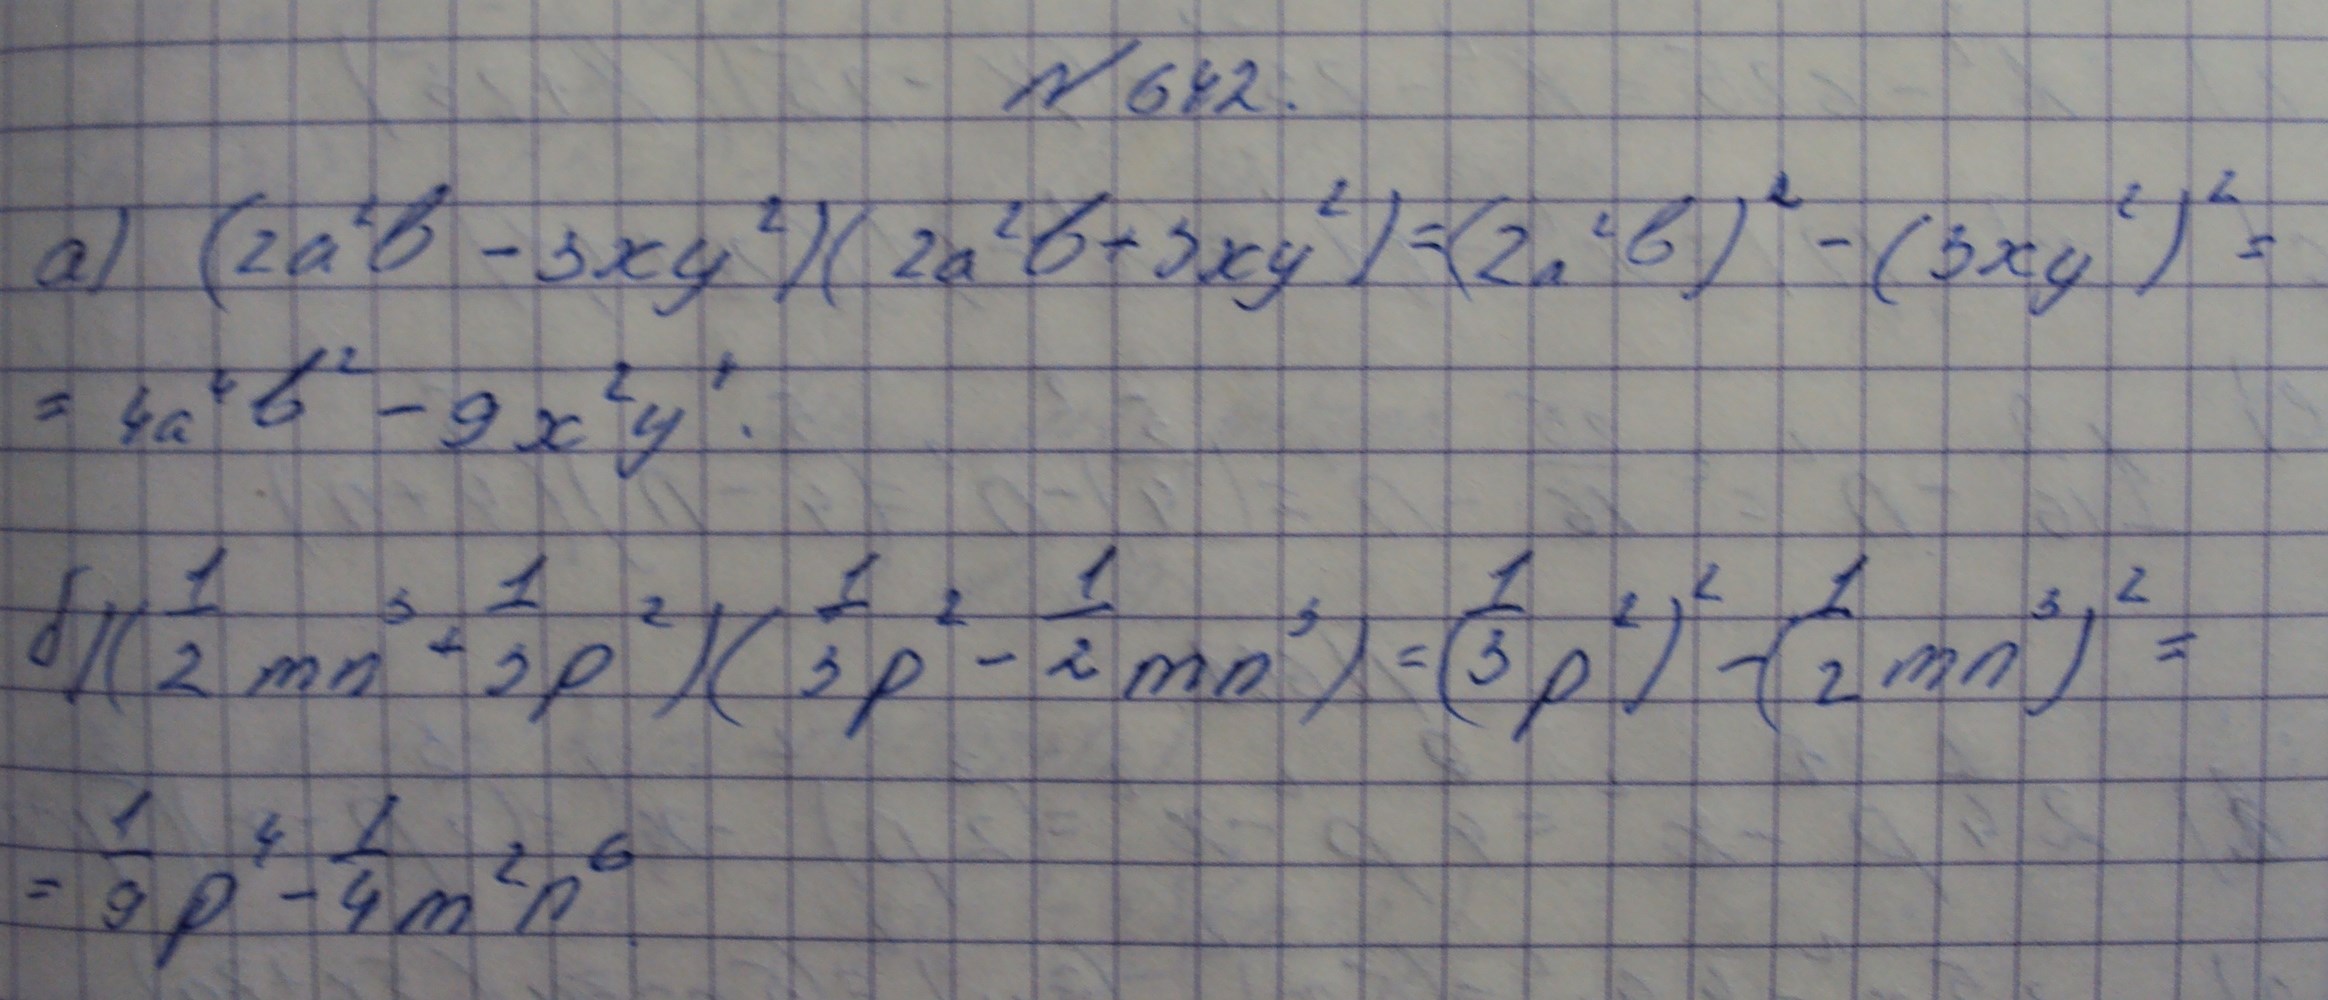 № 642.
а) (2a²b - 3xy²)(2a²b + 3xy²) = (2a²b)² - (3xy²)² =
= 4a⁴b² - 9x²y⁴.
б) (1/2 mn³ + 1/3 p²)(1/3 p² - 1/2 mn³) = (1/3 p²)² - (1/2 mn³)² =
= 1/9 p⁴ - 1/4 m²n⁶